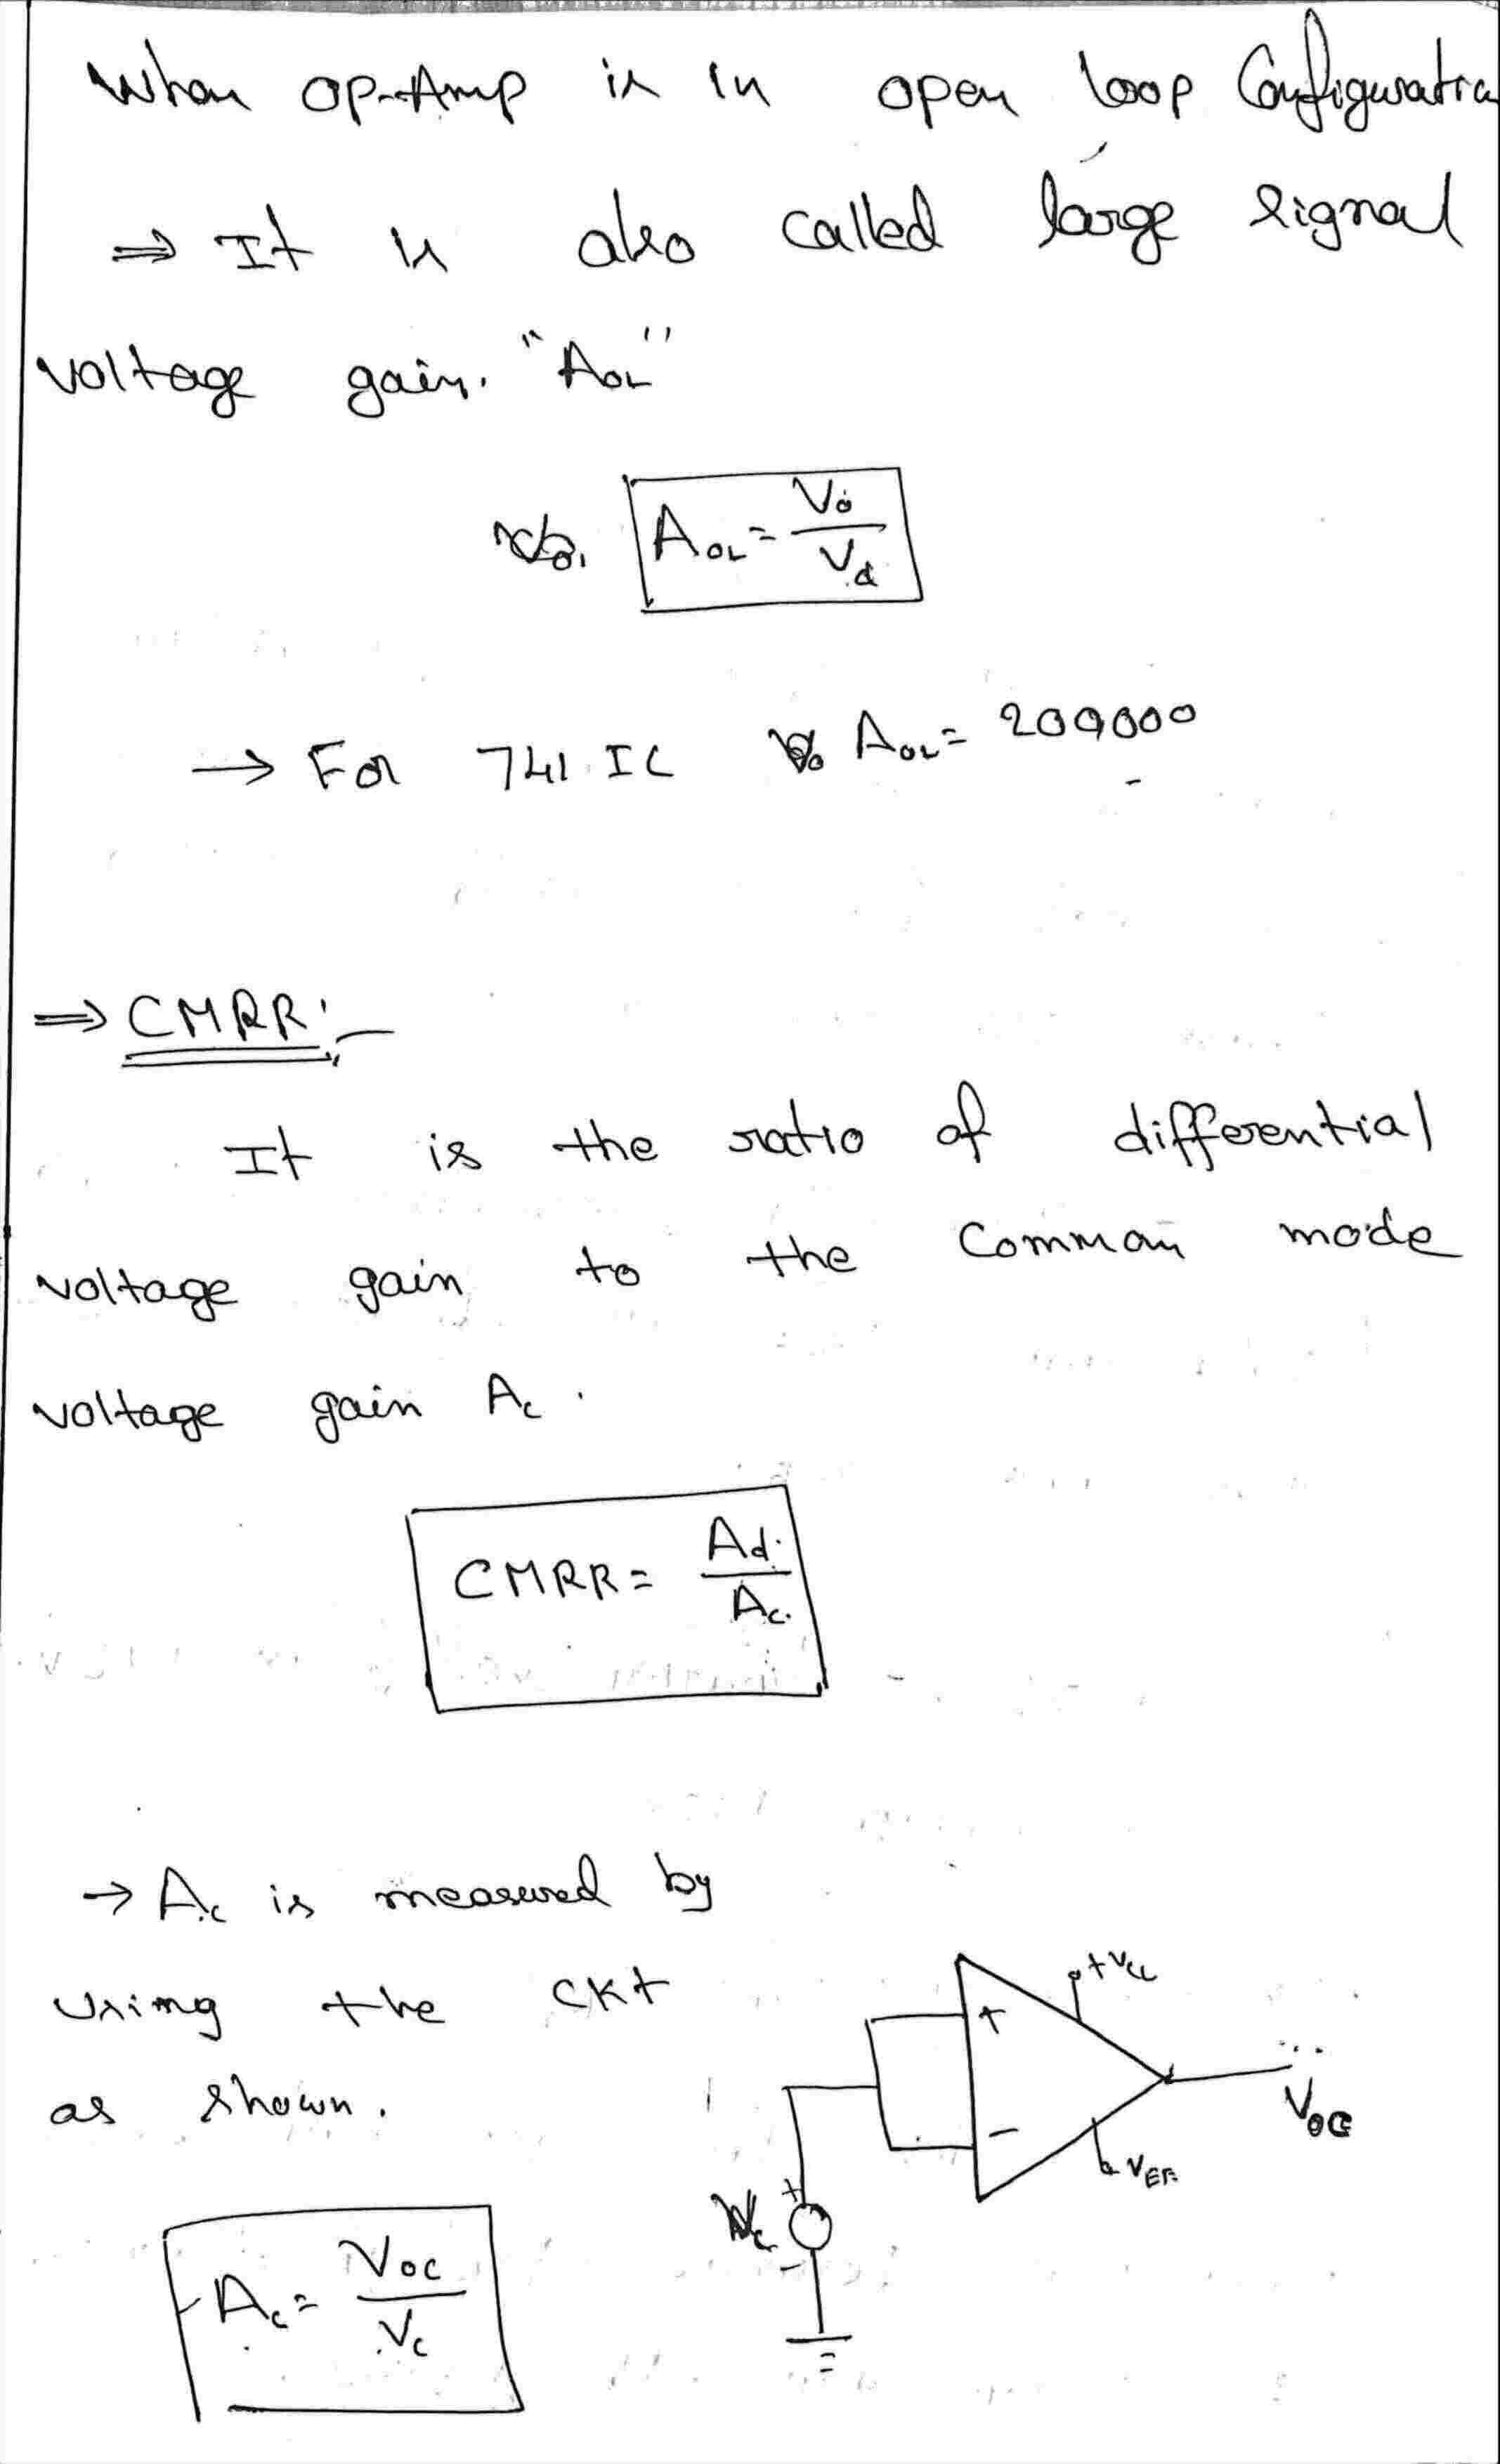 When op-Amp is in open loop Configuratio
⇒ It is also called large signal
voltage gain. "AOL"
AOL = Vo / Vd
→ For 741 IC AOL = 200000
⇒ CMRR:-
It is the ratio of differential
voltage gain to the Common mode
voltage gain Ac.
CMRR = Ad / Ac
→ Ac is measured by
using the ckt
as shown.
+VCC
+
-
VOC
VEE
+
Vc
-
Ac = VOC / Vc